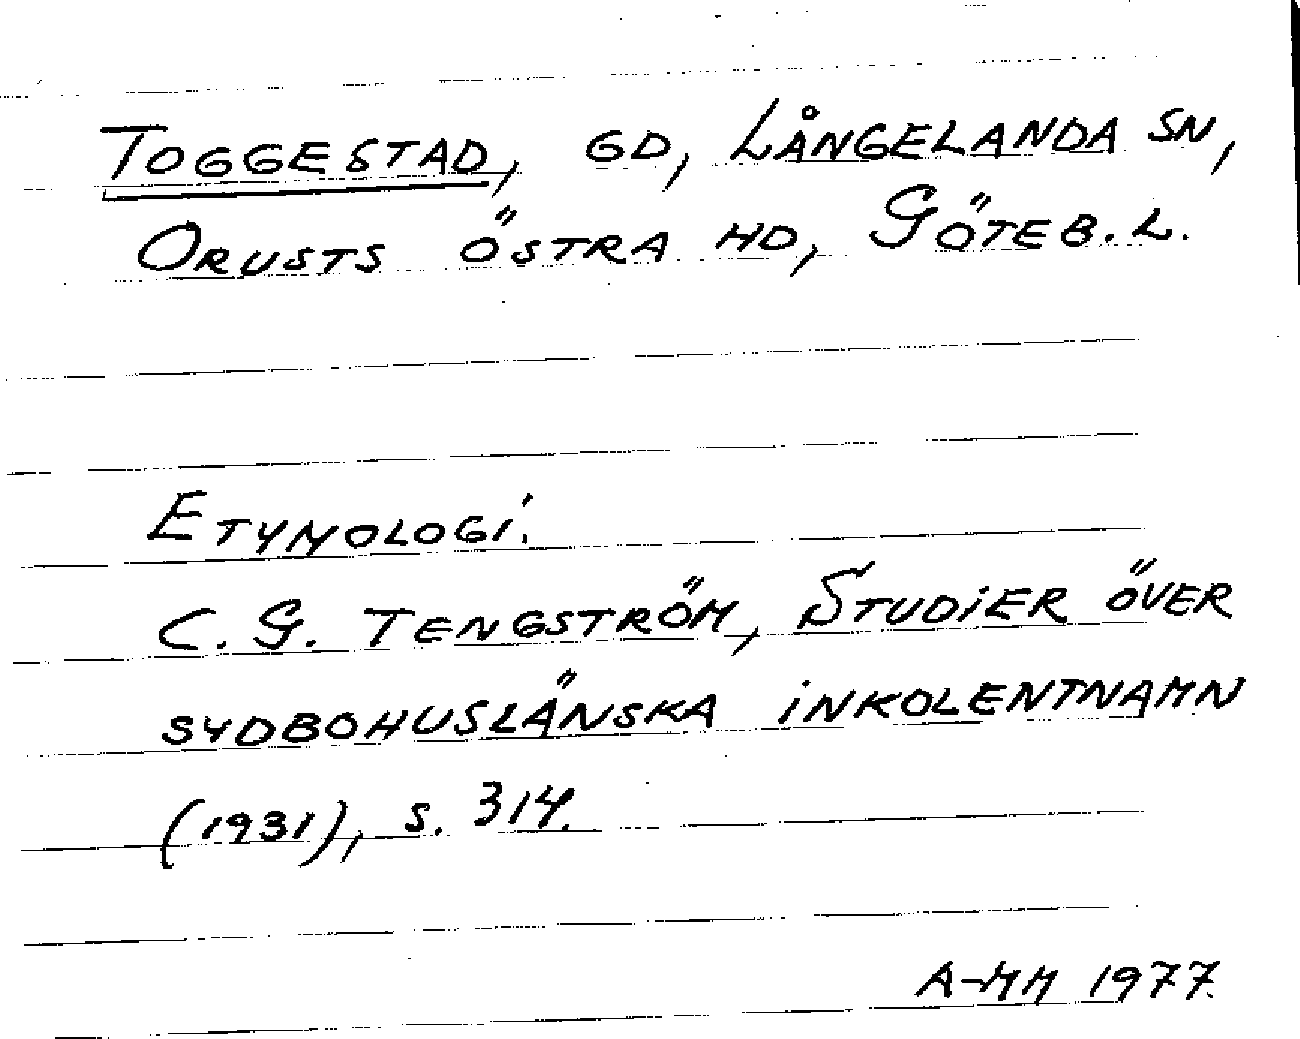 TOGGESTAD, GD, LÅNGELANDA SN,
ORUSTS ÖSTRA HD, GÖTEB. L.
ETYMOLOGI.
C. G. TENGSTRÖM, STUDIER ÖVER
SYDBOHUSLÄNSKA INKOLENTNAMN
(1931), S. 314.
A-MM 1977.